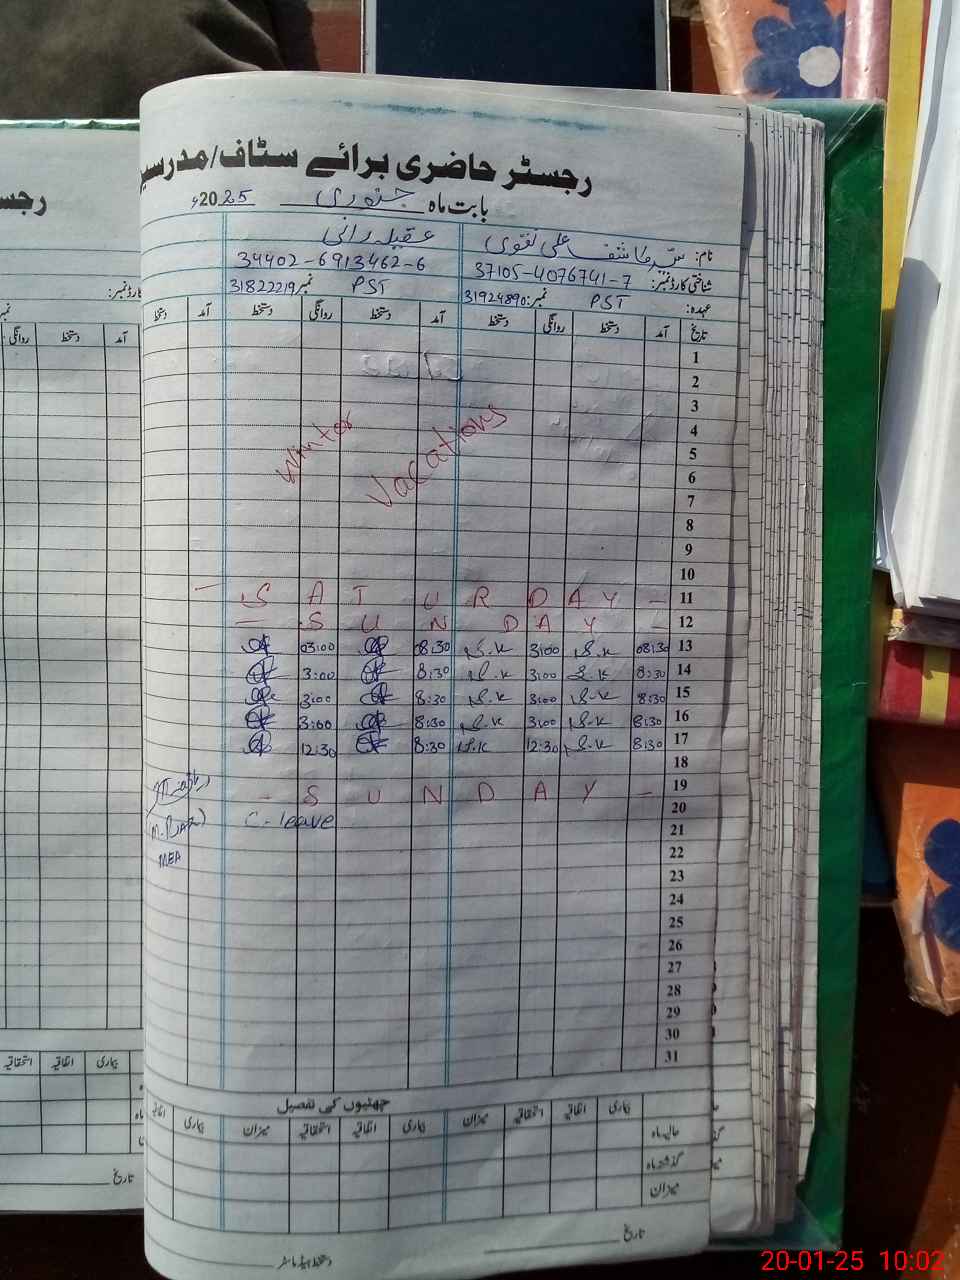 رجسٹر حاضری برائے سٹاف/مدرسین
بابت ماہ جنوری 2025ء
نام: سید کاشف علی نقوی عقیلہ رانی
شناختی کارڈ نمبر: 37105-4076741-7 34402-6913462-6
عہدہ: PST نمبر: 31924890 PST نمبر 31822219
تاریخ آمد دستخط روانگی دستخط آمد دستخط روانگی دستخط آمد دستخط
1
2
3
4
5
6
7
8
9
10
Winter Vacations
11 - SATURDAY -
12 - SUNDAY
13 08:30 S.K 3:00 S.K 08:30 03:00
14 8:30 S.K 3:00 S.K 8:30 3:00
15 8:30 S.K 3:00 S.K 8:30 3:00
16 8:30 S.K 3:00 S.K 8:30 3:00
17 8:30 S.K 12:30 S.K 8:30 12:30
18
19 - SUNDAY -
20 C-leave
21
22 MEA
23
24
25
26
27
28
29
30
31
چھٹیوں کی تفصیل
بیماری اتفاقیہ استحقاقیہ میزان بیماری اتفاقیہ استحقاقیہ میزان بیماری اتفاقیہ
حالیہ ماہ
گذشتہ ماہ
میزان
تاریخ
رجسٹر
کارڈ نمبر:
آمد دستخط روانگی
بیماری اتفاقیہ استحقاقیہ
تاریخ
20-01-25 10:02